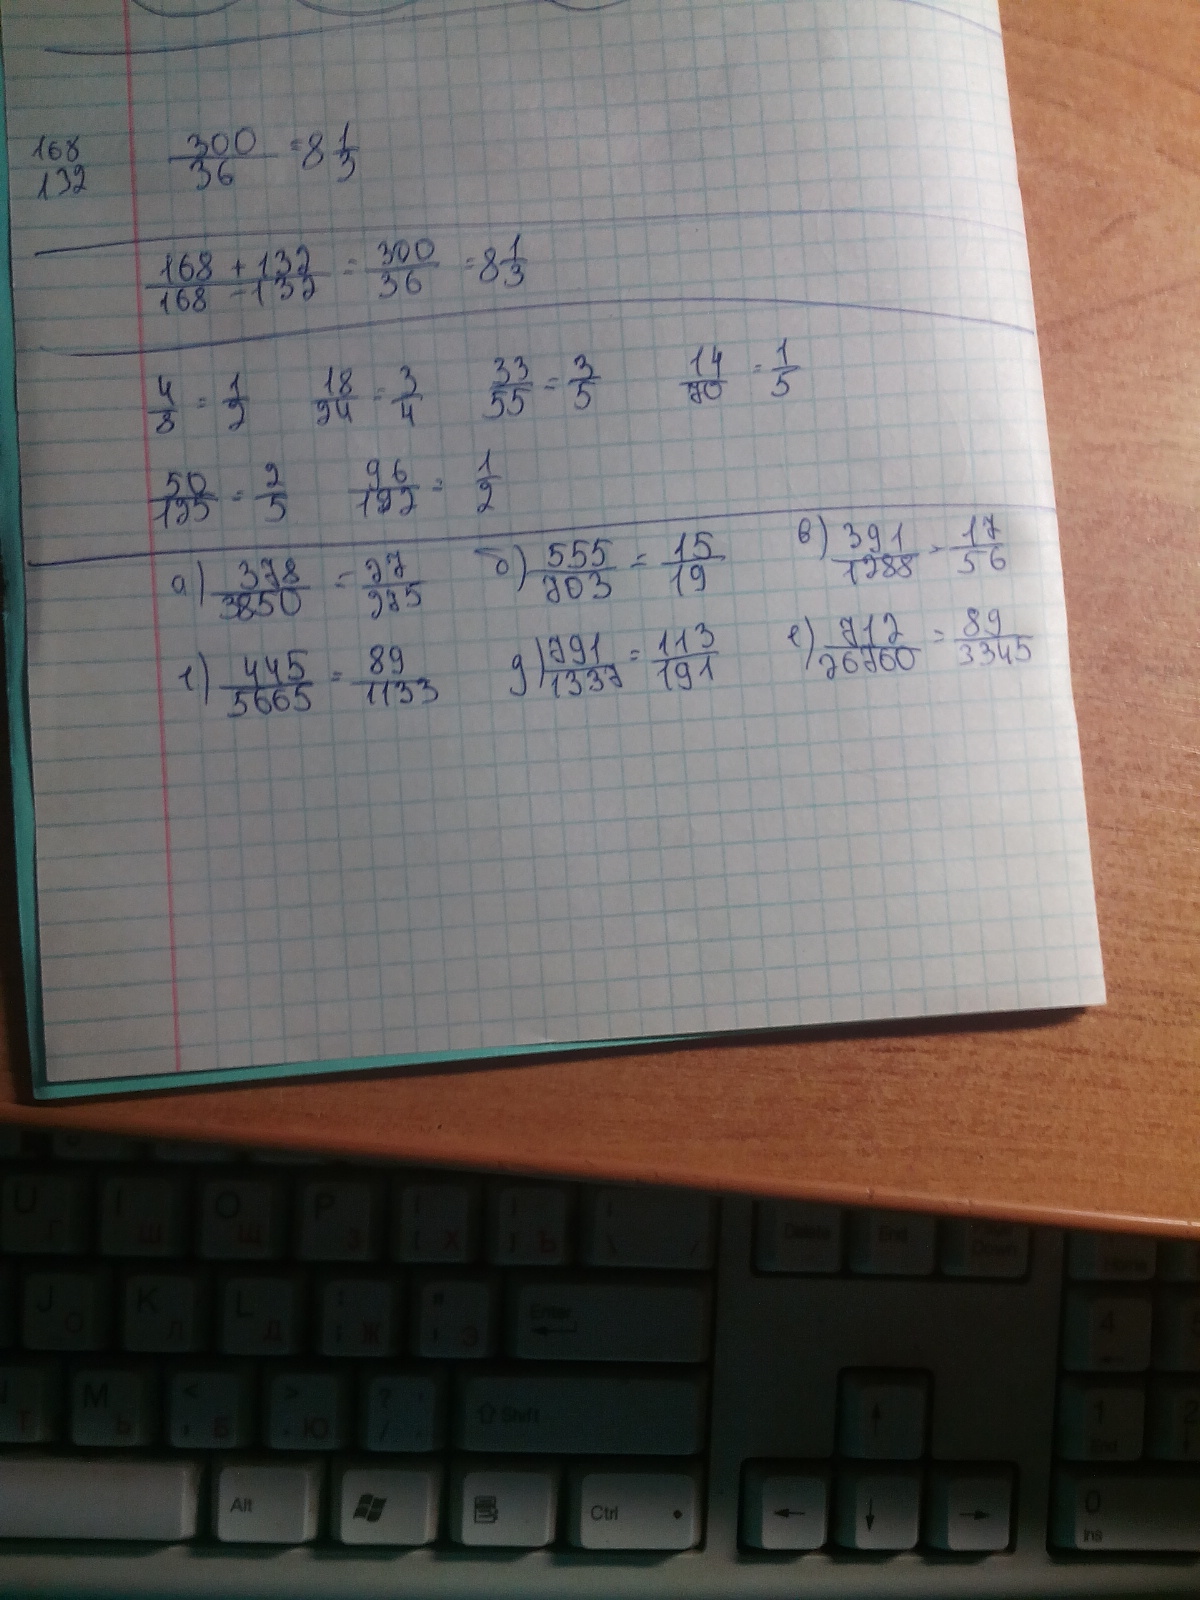 168 300/36 = 8 1/3
132
168 + 132 / 168 - 132 = 300/36 = 8 1/3
4/8 = 1/2 18/24 = 3/4 33/55 = 3/5 14/70 = 1/5
50/125 = 2/5 96/192 = 1/2
а) 378/3850 = 27/275 б) 555/703 = 15/19 в) 391/1288 = 17/56
г) 445/5665 = 89/1133 д) 791/1337 = 113/191 е) 712/26760 = 89/3345
U Г I Ш O Щ P З [ Х ] Ъ \ / Delete End Down
J О K Л L Д : ; Ж " ' Э Enter 4
M Ь < , Б > . Ю ? / Shift 1 End 2
Alt Ctrl 0 Ins